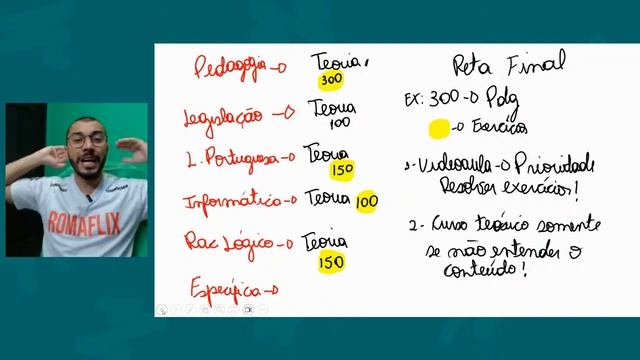 Pedagogia → Teoria
300
Legislação → Teoria
100
L. Portuguesa → Teoria
150
Informática → Teoria 100
Rac Lógico → Teoria
150
Específica →
Reta Final
EX: 300 → Pdg
→ Exercícios
1- Videoaula → Prioridade
Resolver exercícios!
2- Curso teórico somente
se não entender o
conteúdo!
ROMAFLIX